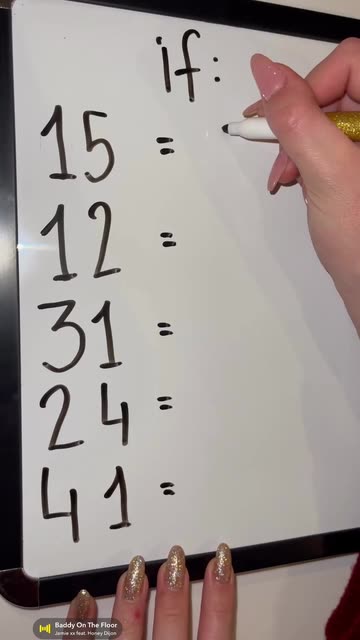 if:
15 =
12 =
31 =
24 =
41 =
Baddy On The Floor
Jamie xx feat. Honey Dijon